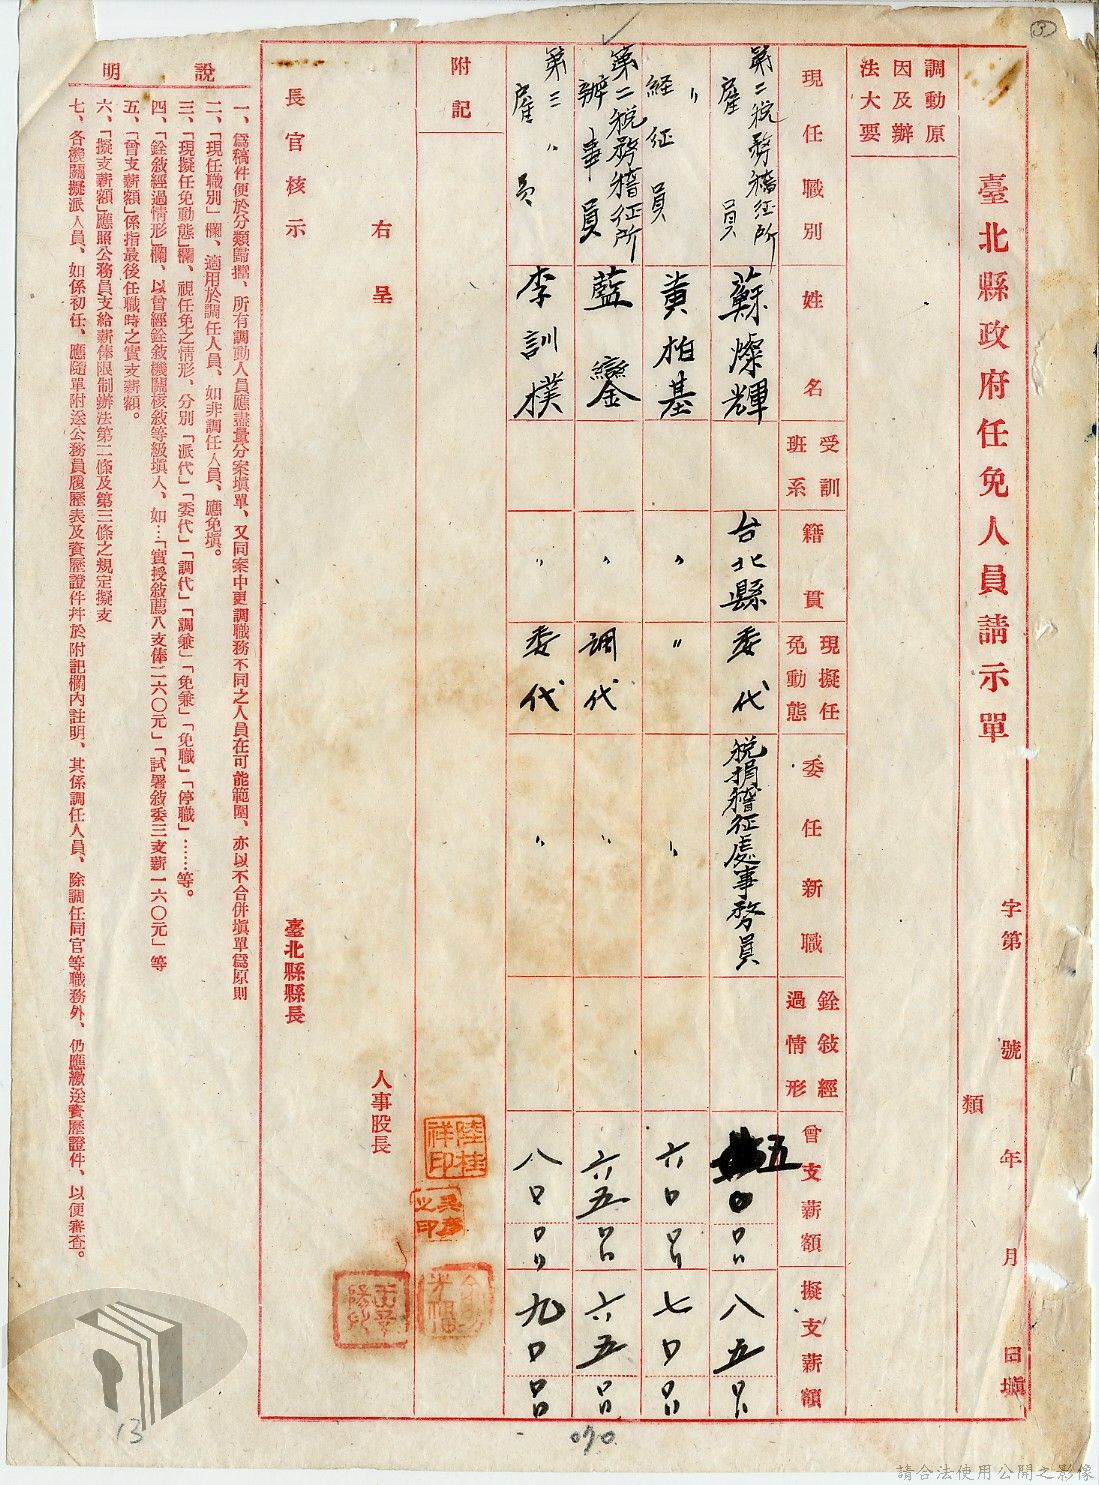 臺北縣政府任免人員請示單
字第 號
類
年 月 日填
調動原因及辦法大要
現任職別
姓名
受訓班系
籍貫
現擬任免動態
委任新職
銓敍經過情形
曾支薪額
擬支薪額
第二稅務稽征所雇員
蘇燦輝
台北縣
委代
稅捐稽征處事務員
五
八五
〃經征員
黄柏基
〃
〃
〃
六〇
七〇
第二稅務稽征所辦事員
藍鑾
〃
調代
〃
六五
六五
第三〃雇員
李訓樸
〃
委代
〃
八〇
九〇
附記
右呈
人事股長
長官核示
臺北縣縣長
說明
一、爲稿件便於分類歸檔、所有調動人員應盡量分案填單、又同案中更調職務不同之人員在可能範圍、亦以不合併填單爲原則
二、「現任職別」欄、適用於調任人員、如非調任人員、應免填。
三、「現擬任免動態」欄、視任免之情形、分別「派代」「委代」「調代」「調兼」「免兼」「免職」「停職」……等。
四、「銓敍經過情形」欄、以曾經銓敍機關核敍等級填入、如…「實授敍薦八支俸二六〇元」「試署敍委三支薪一六〇元」等
五、「曾支薪額」係指最後任職時之實支薪額。
六、「擬支薪額」應照公務員支給薪俸限制辦法第二條及第三條之規定擬支
七、各機關擬派人員、如係初任、應隨單附送公務員履歷表及資歷證件幷於附記欄內註明、其係調任人員、除調任同官等職務外、仍應繳送資歷證件、以便審查。
陸桂祥印
13
070
3
請合法使用公開之影像